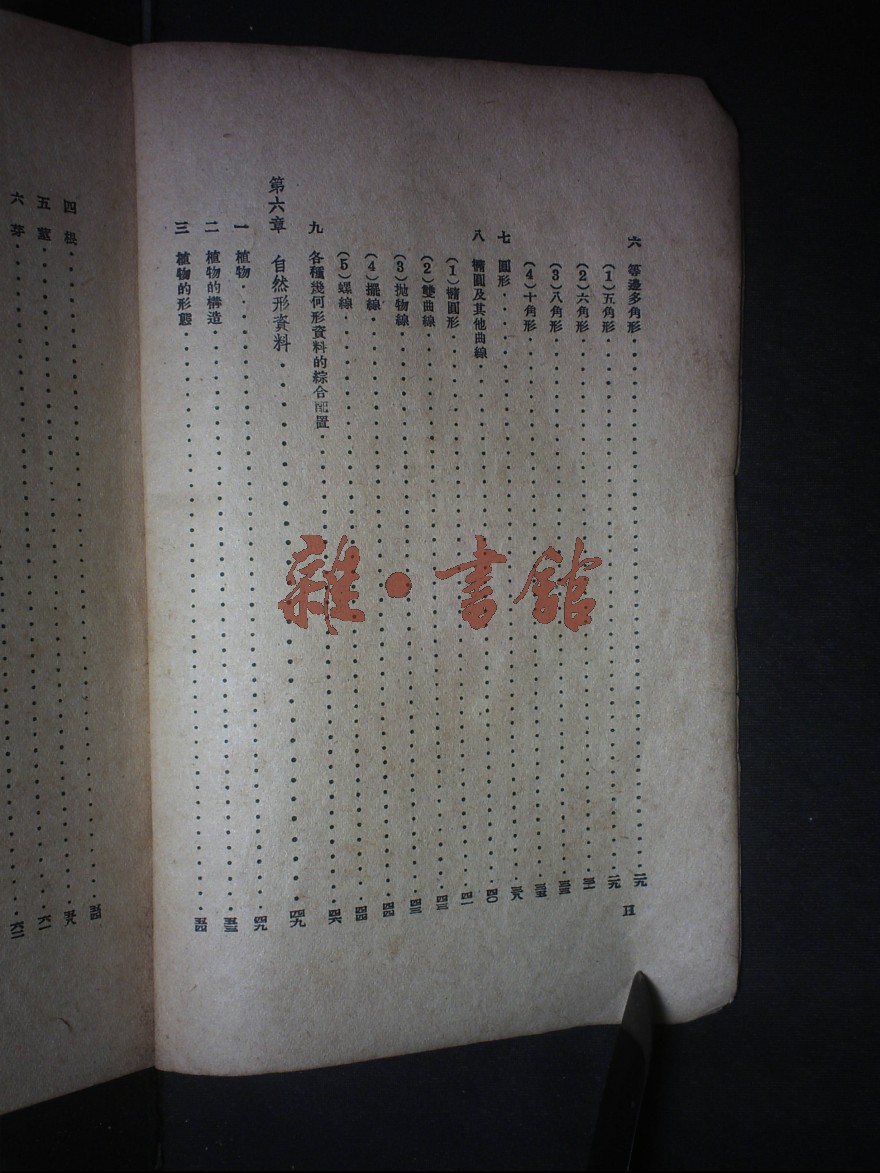 六 等邊多角形 二九
(1)五角形 二九
(2)六角形 三一
(3)八角形 三三
(4)十角形 三五
七 圓形 三八
八 橢圓及其他曲線 四〇
(1)橢圓形 四一
(2)雙曲線 四三
(3)拋物線 四三
(4)擺線 四四
(5)螺線 四四
九 各種幾何形資料的綜合配置 四六
第六章 自然形資料 四九
一 植物 四九
二 植物的構造 五三
三 植物的形態 五四
II
四 根 五四
五 莖 五八
六 芽 六一
六二
雜·書館